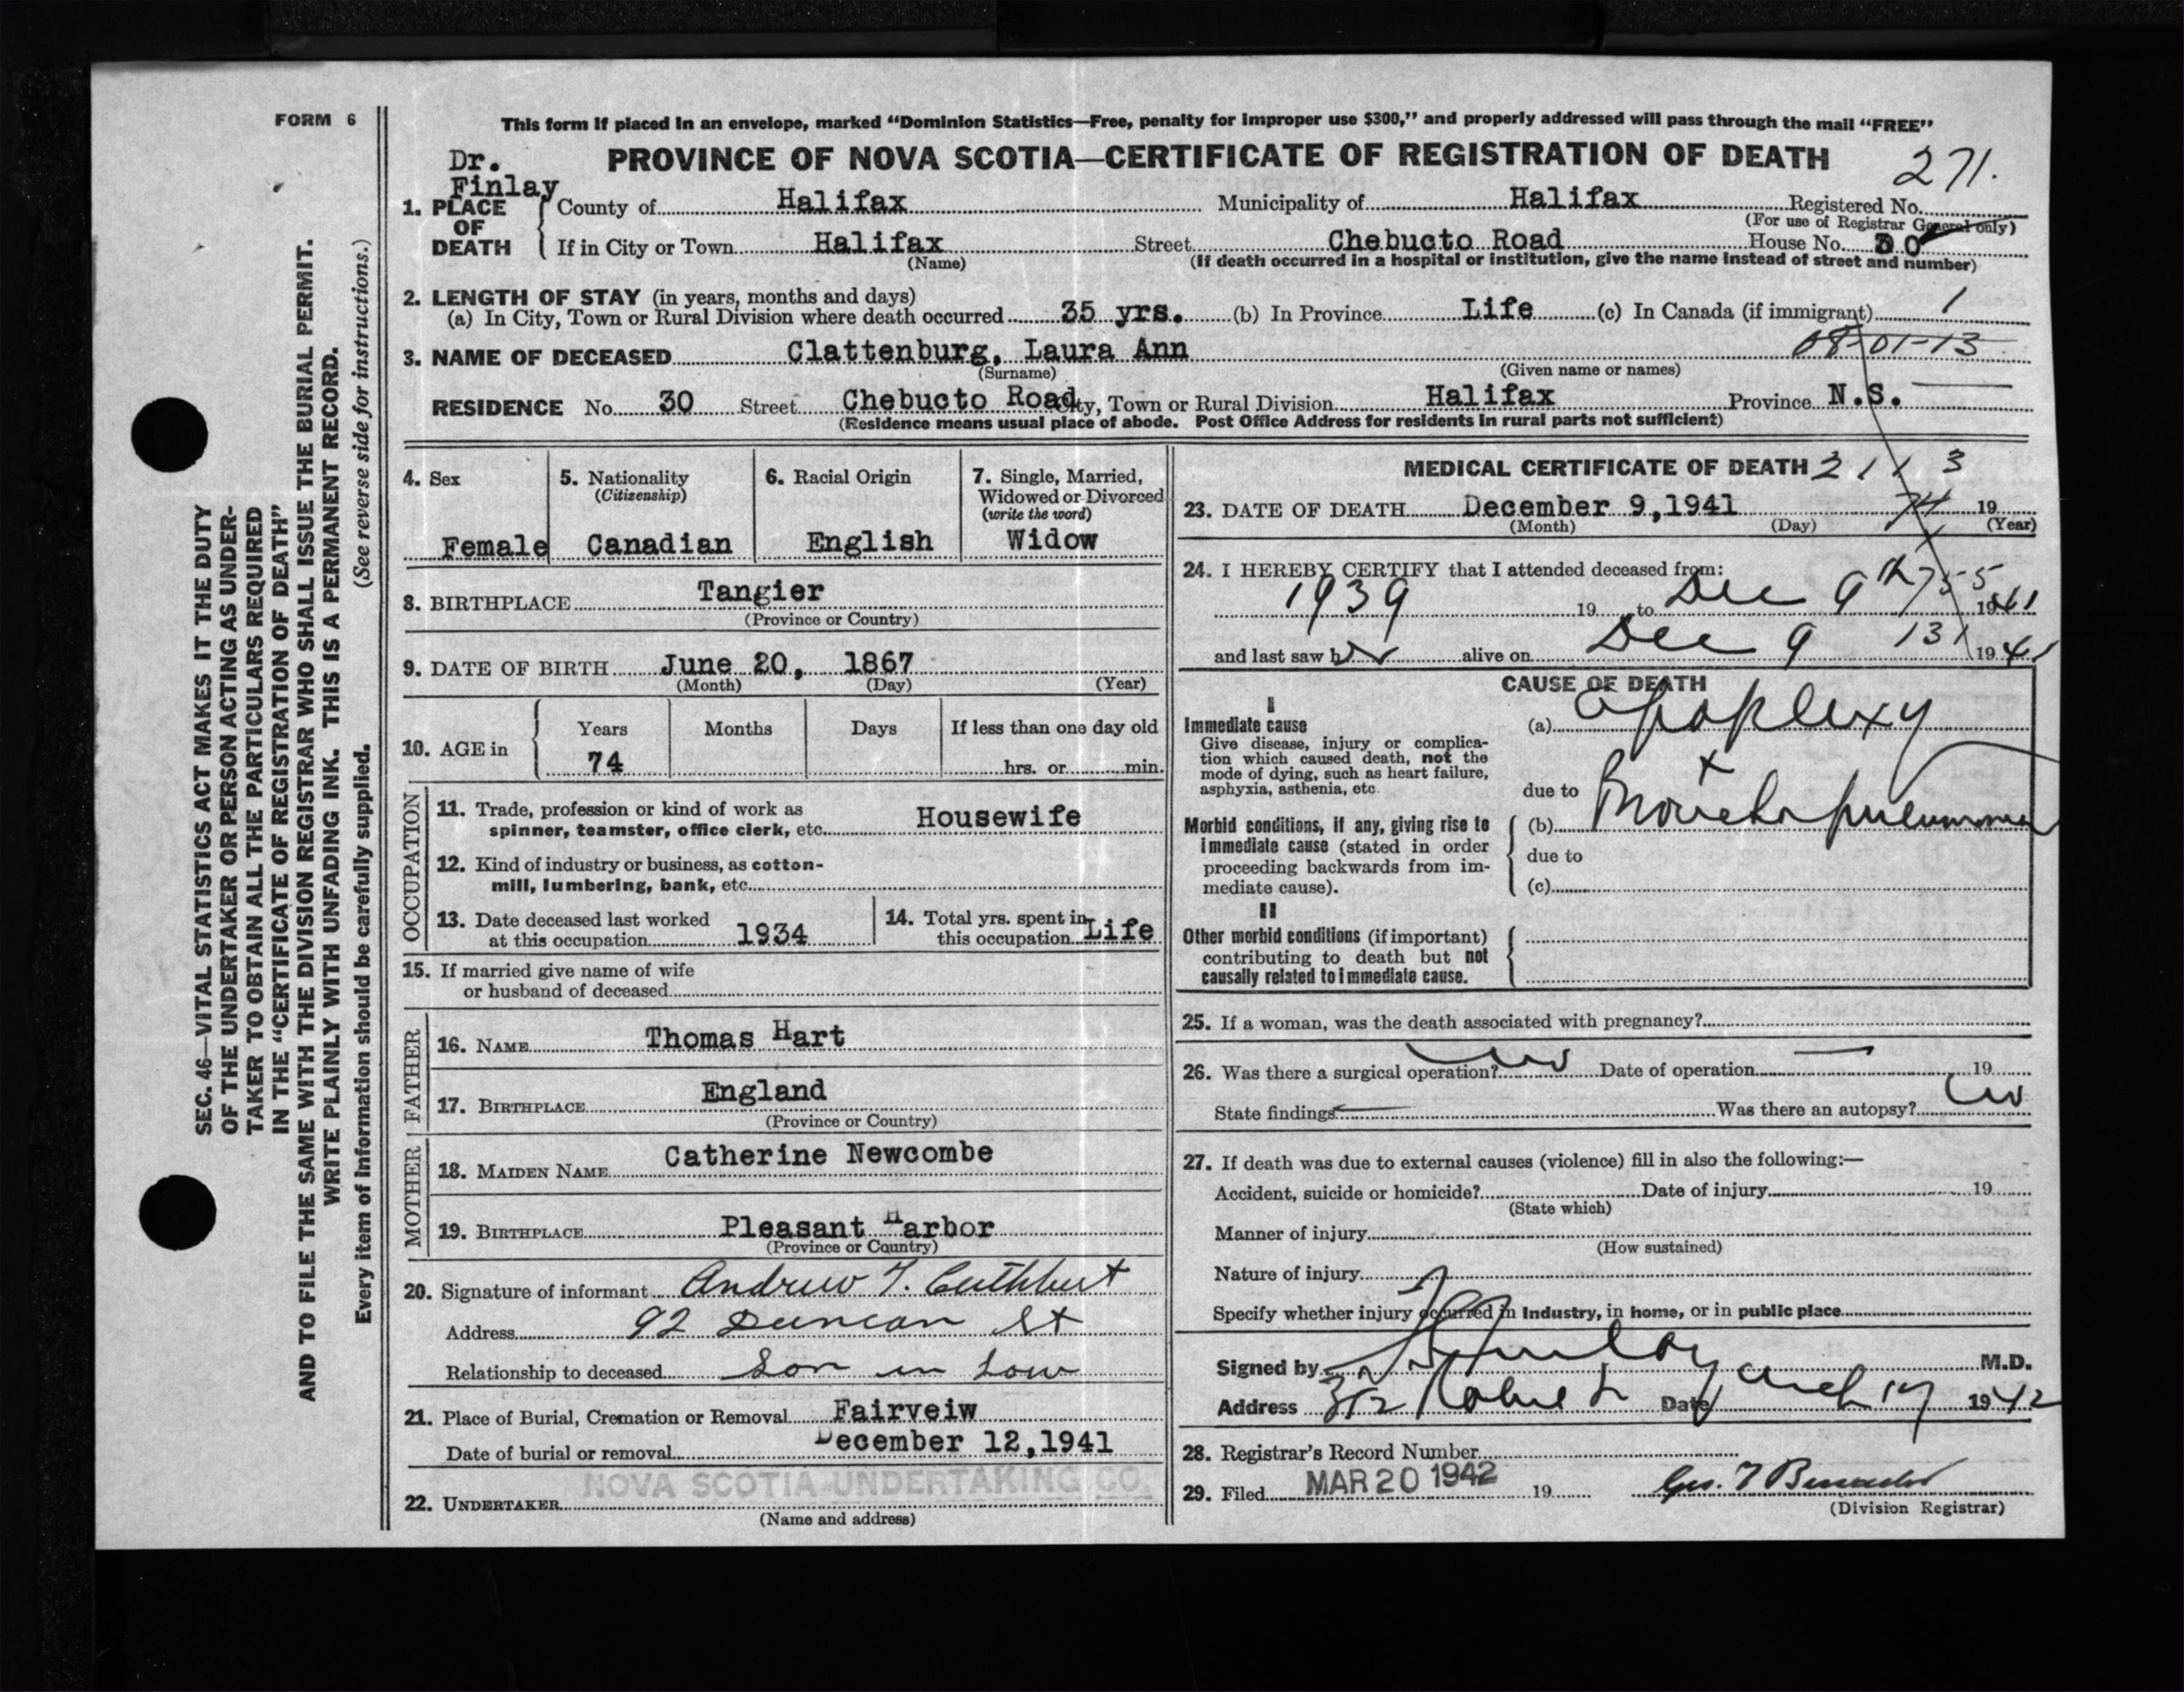 FORM 6
This form if placed in an envelope, marked “Dominion Statistics—Free, penalty for improper use $300,” and properly addressed will pass through the mail “FREE”
Dr. Finlay
PROVINCE OF NOVA SCOTIA—CERTIFICATE OF REGISTRATION OF DEATH
271.
1. PLACE OF DEATH
County of Halifax Municipality of Halifax Registered No.
(For use of Registrar General only)
If in City or Town Halifax Street Chebucto Road House No. 30
(Name) (If death occurred in a hospital or institution, give the name instead of street and number)
2. LENGTH OF STAY (in years, months and days)
(a) In City, Town or Rural Division where death occurred 35 yrs. (b) In Province Life (c) In Canada (if immigrant) 1
3. NAME OF DECEASED Clattenburg, Laura Ann 08-01-13
(Surname) (Given name or names)
RESIDENCE No. 30 Street Chebucto Road City, Town or Rural Division Halifax Province N.S.
(Residence means usual place of abode. Post Office Address for residents in rural parts not sufficient)
4. Sex
Female
5. Nationality
(Citizenship)
Canadian
6. Racial Origin
English
7. Single, Married,
Widowed or Divorced
(write the word)
Widow
8. BIRTHPLACE Tangier
(Province or Country)
9. DATE OF BIRTH June 20, 1867
(Month) (Day) (Year)
10. AGE in
Years Months Days If less than one day old
74 hrs. or min.
OCCUPATION
11. Trade, profession or kind of work as
spinner, teamster, office clerk, etc. Housewife
12. Kind of industry or business, as cotton-
mill, lumbering, bank, etc.
13. Date deceased last worked
at this occupation 1934
14. Total yrs. spent in
this occupation Life
15. If married give name of wife
or husband of deceased
FATHER
16. NAME Thomas Hart
17. BIRTHPLACE England
(Province or Country)
MOTHER
18. MAIDEN NAME Catherine Newcombe
19. BIRTHPLACE Pleasant Harbor
(Province or Country)
20. Signature of informant Andrew T. Cuthbert
Address 92 Duncan St
Relationship to deceased Son in Law
21. Place of Burial, Cremation or Removal Fairveiw
Date of burial or removal December 12,1941
22. UNDERTAKER NOVA SCOTIA UNDERTAKING CO.
(Name and address)
MEDICAL CERTIFICATE OF DEATH 211 3
23. DATE OF DEATH December 9,1941 74 19
(Month) (Day) (Year)
24. I HEREBY CERTIFY that I attended deceased from:
1939 19 to Dec 9th 755 1941
and last saw her alive on Dec 9 131 1941
CAUSE OF DEATH
I
Immediate cause
Give disease, injury or complica-
tion which caused death, not the
mode of dying, such as heart failure,
asphyxia, asthenia, etc.
(a) Apoplexy
+
due to
Morbid conditions, if any, giving rise to
immediate cause (stated in order
proceeding backwards from im-
mediate cause).
(b) Broncho pneumonia
due to
(c)
II
Other morbid conditions (if important)
contributing to death but not
causally related to immediate cause.
25. If a woman, was the death associated with pregnancy?
26. Was there a surgical operation? no Date of operation — 19
State findings — Was there an autopsy? no
27. If death was due to external causes (violence) fill in also the following:—
Accident, suicide or homicide? Date of injury 19
(State which)
Manner of injury
(How sustained)
Nature of injury
Specify whether injury occurred in Industry, in home, or in public place
Signed by Finlay M.D.
Address 312 Robie St Date March 17 1942
28. Registrar’s Record Number
29. Filed MAR 20 1942 19
(Division Registrar)
SEC. 46—VITAL STATISTICS ACT MAKES IT THE DUTY
OF THE UNDERTAKER OR PERSON ACTING AS UNDER-
TAKER TO OBTAIN ALL THE PARTICULARS REQUIRED
IN THE “CERTIFICATE OF REGISTRATION OF DEATH”
AND TO FILE THE SAME WITH THE DIVISION REGISTRAR WHO SHALL ISSUE THE BURIAL PERMIT.
WRITE PLAINLY WITH UNFADING INK. THIS IS A PERMANENT RECORD.
Every item of information should be carefully supplied. (See reverse side for instructions.)